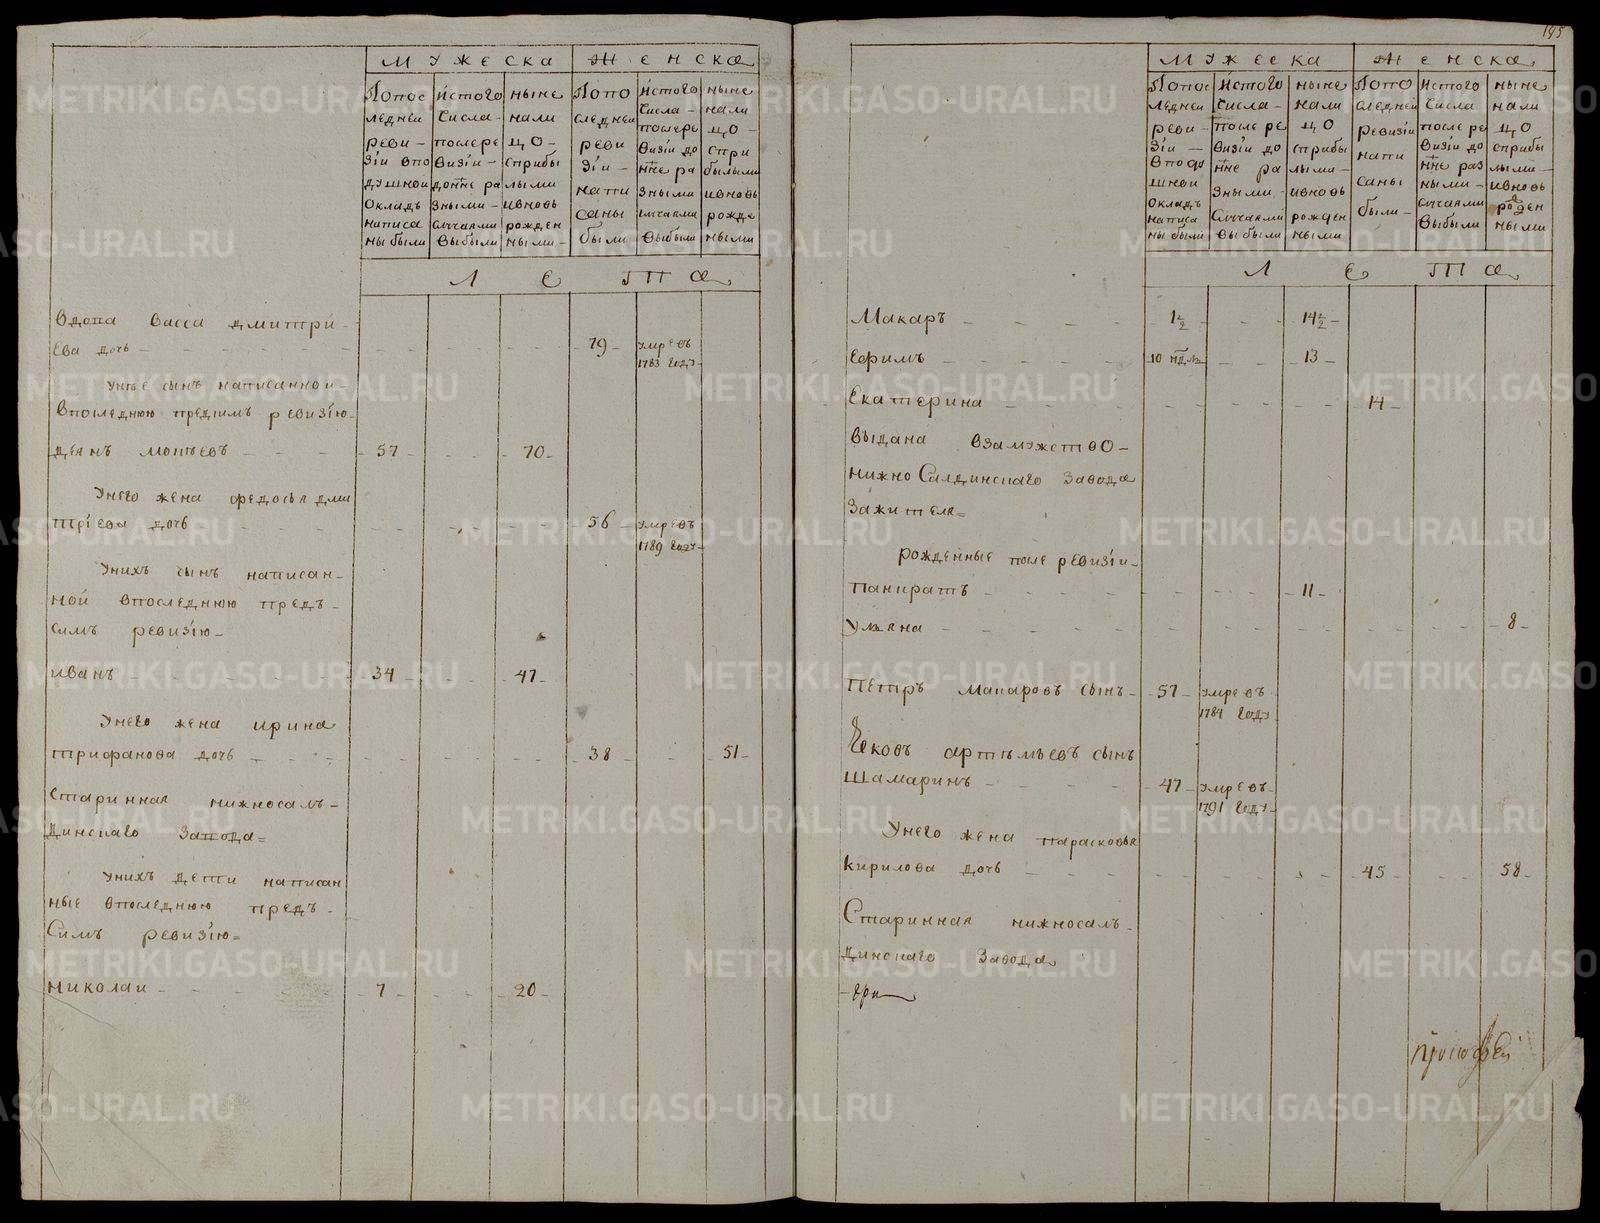 МУЖЕСКА
ЖЕНСКА
Попос
ледней
реви-
зіи впо
душной
окладъ
написа
ны были
Истого
числа-
послере
визіи-
доннѣ ра
зными-
случаями
выбыли
ныне
нали
цо-
сприбы
лыми
ивновь
рожден
ными-
Попо
следней
реви
зіи-
напи
саны
были
Истого
числа-
послере
визіи до
ннѣ ра
зными
случаями
выбыли
ныне
нали
цо-
спри
былыми
ивновь
рожде
ными
ЛЕТА
Вдова Васса дмитрі-
ева дочь - 79 - умре въ
1783 году
Унее сынъ написанной-
впоследнюю предсимъ ревизію-
демъ мокѣевъ - 57 - 70-
Унего жена федосья дми
тріева дочь - 56 - умре въ
1789 году-
Унихъ сынъ написан-
ной впоследнюю предъ-
симъ ревизію-
иванъ - 34 - 47-
Унего жена ирина
трифанова дочь - 38 - 51-
Старинная нижносалъ-
динскаго завода=
Унихъ дети написан
ные впоследнюю предъ-
симъ ревизію=
николаи - 7 - 20-
195
МУЖЕСКА
ЖЕНСКА
Попос
ледней
реви-
зіи-
вподу
шной
окладъ
написа
ны были
Истого
числа-
послере
визіи до
нне ра
зными-
случаями
выбыли
ныне
нали
цо
сприбы
лыми-
ивновь
рожден
ными
Попо
следней
ревизіи
напи
саны
были-
Истого
числа
послере
визіи до
нне раз
ными-
случаями
выбыли
ныне
нали
цо
сприбы
лыми-
ивновь
рожден
ными
ЛЕТА
Макаръ - 1½ - 14½-
Ефимъ - 10 ндль - 13-
Екатерина - 14-
выдана взамужство-
нижно Салдинскаго завода
зажителя=
рожденные после ревизіи-
панкратъ - 11-
ульяна - 8-
петръ макаровъ сынъ- 57- умре въ
1784 году
Яковъ артѣмьевъ сынъ
шамаринъ - 47- умре въ
1791 году-
Унего жена парасковья
кирилова дочь - 45 - 58-
Старинная нижносалъ-
динскаго завода